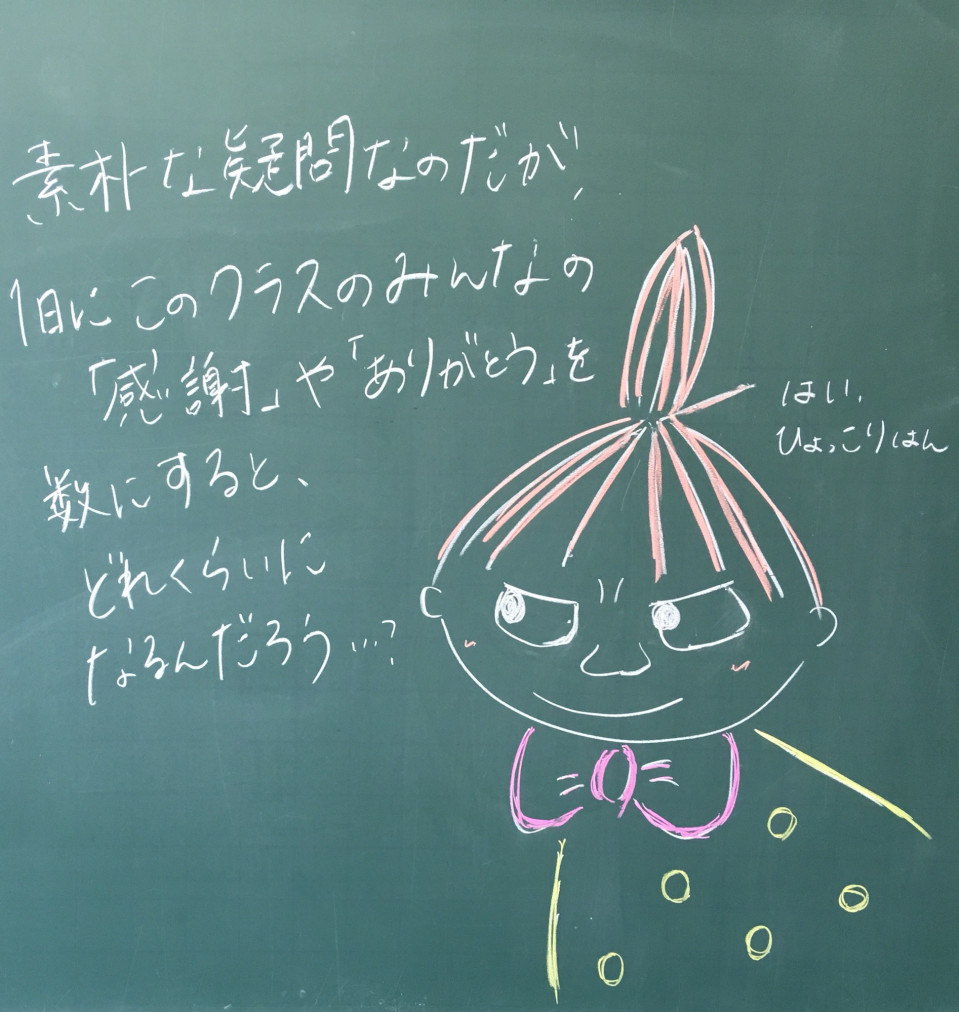 素朴な疑問なのだが、
1日にこのクラスのみんなの
「感謝」や「ありがとう」を
数にすると、
どれくらいに
なるんだろう…?
はい、
ひょっこりはん